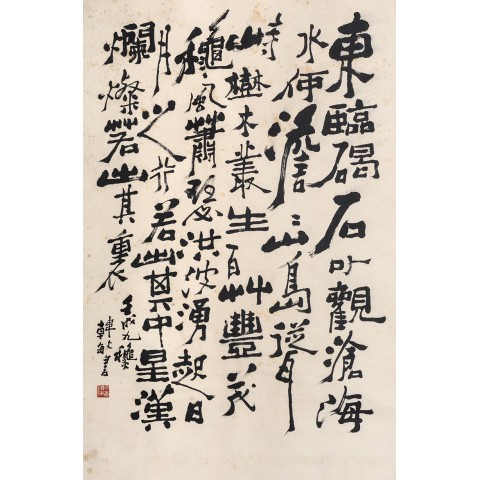 東臨碣石以觀滄海
水何澹〻山島竦
峙樹木叢生百艸豐茂
穐風蕭瑟洪波湧起日
月之行若出其中星漢
爛燦若出其裏
壬戌九穐
書